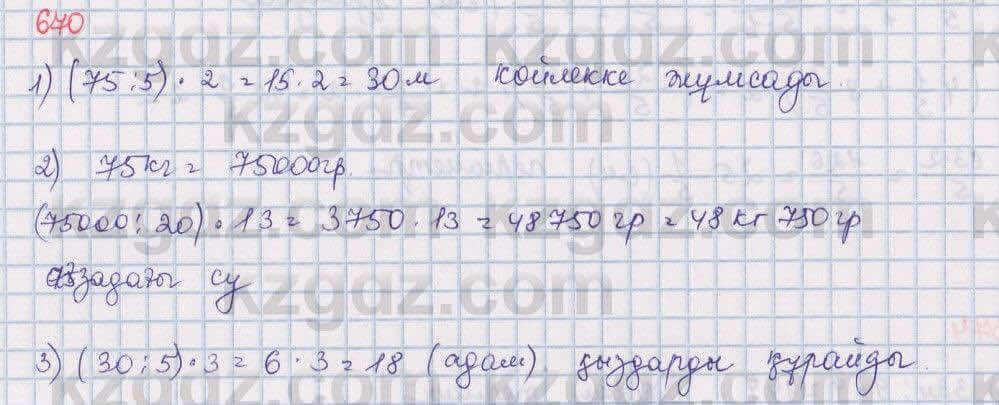 670
1) (75:5)·2=15·2=30м көйлекке жұмсады.
2) 75кг=75000гр.
(75000:20)·13=3750·13=48750гр=48кг 750гр
ағзадағы су
3) (30:5)·3=6·3=18 (адам) қыздарды құрайды.
kzgdz.com
kzgdz.com
kzgdz.com
kzgdz.com
kzgdz.com